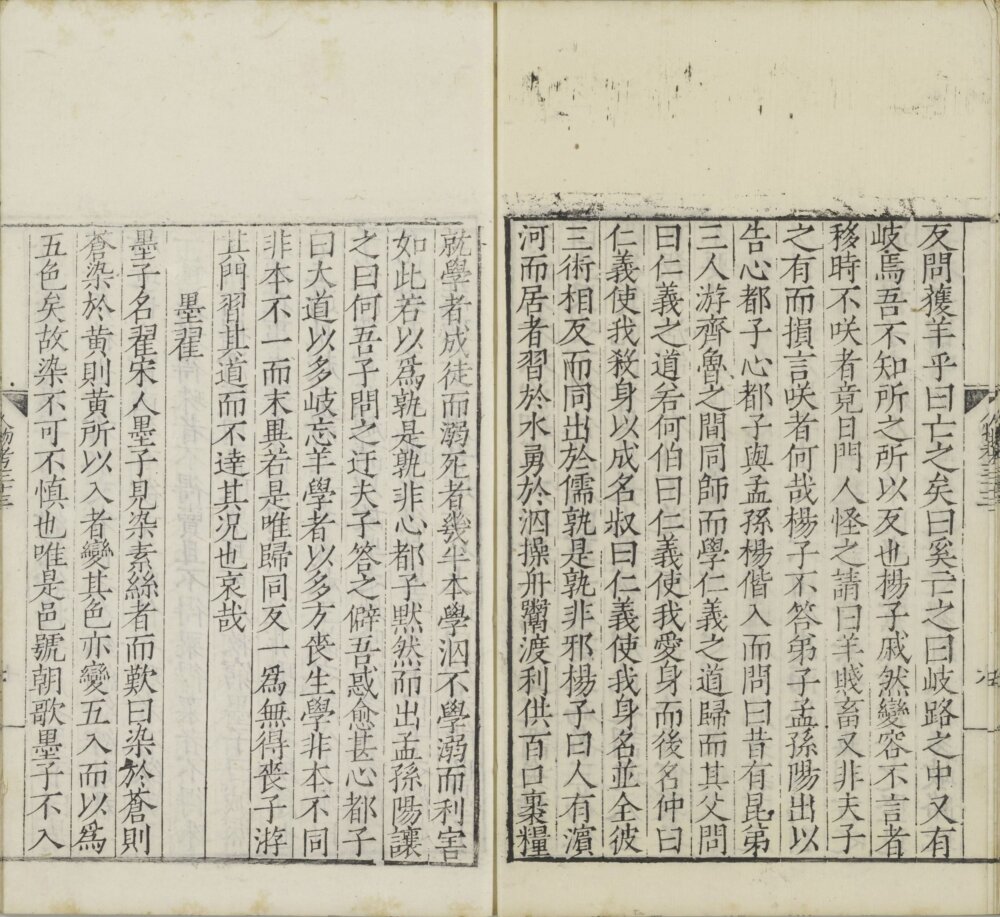 反問獲羊乎曰亡之矣曰奚亡之曰岐路之中又有
岐焉吾不知所之所以反也楊子戚然變容不言者
移時不咲者竟日門人怪之請曰羊賤畜又非夫子
之有而損言咲者何哉楊子不答弟子孟孫陽出以
告心都子心都子與孟孫楊偕入而問曰昔有昆弟
三人游齊魯之間同師而學仁義之道歸而其父問
曰仁義之道若何伯曰仁義使我愛身而後名仲曰
仁義使我殺身以成名叔曰仁義使我身名並全彼
三術相反而同出於儒孰是孰非邪楊子曰人有濵
河而居者習於水勇於泅操舟鬻渡利供百口裹糧
就學者成徒而溺死者幾半本學泅不學溺而利害
如此若以爲孰是孰非心都子默然而出孟孫陽讓
之曰何吾子問之迂夫子答之僻吾惑愈甚心都子
曰大道以多岐忘羊學者以多方丧生學非本不同
非本不一而末異若是唯歸同反一爲無得丧子游
其門習其道而不達其况也哀哉
墨翟
墨子名翟宋人墨子見染素絲者而歎曰染於蒼則
蒼染於黄則黄所以入者變其色亦變五入而以爲
五色矣故染不可不慎也唯是邑號朝歌墨子不入